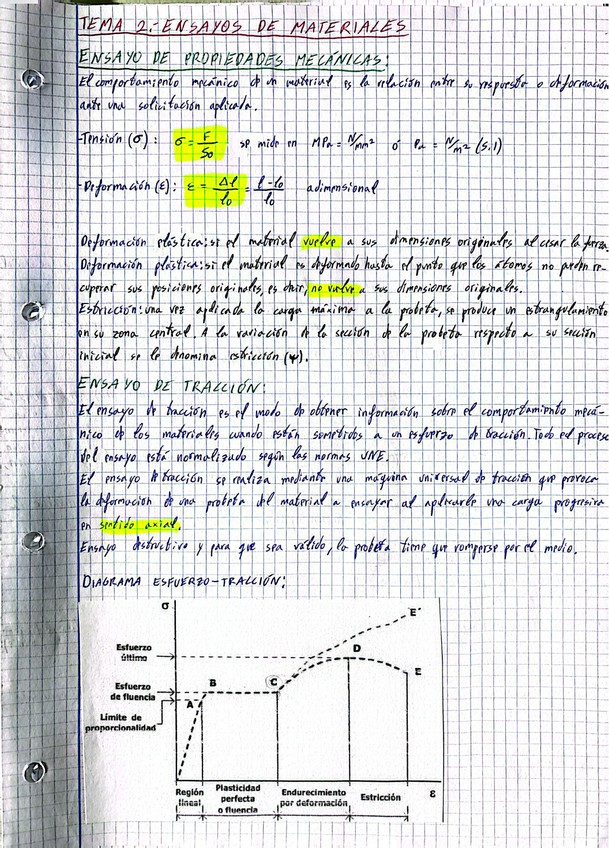 TEMA 2.- ENSAYOS DE MATERIALES
ENSAYO DE PROPIEDADES MECÁNICAS:
El comportamiento mecánico de un material es la relación entre su respuesta o deformación
ante una solicitación aplicada.
-Tensión (σ): σ = F/S₀ se mide en MPa = N/mm² ó Pa = N/m² (S.I)
-Deformación (ε): ε = Δl/l₀ = l-l₀/l₀ adimensional
Deformación elástica: si el material vuelve a sus dimensiones originales al cesar la fuerza.
Deformación plástica: si el material es deformado hasta el punto que los átomos no pueden re-
cuperar sus posiciones originales, es decir, no vuelve a sus dimensiones originales.
Estricción: una vez aplicada la carga máxima a la probeta, se produce un estrangulamiento
en su zona central. A la variación de la sección de la probeta respecto a su sección
inicial se le denomina estricción (ψ).
ENSAYO DE TRACCIÓN:
El ensayo de tracción es el modo de obtener información sobre el comportamiento mecá-
nico de los materiales cuando están sometidos a un esfuerzo de tracción. Todo el proceso
del ensayo está normalizado según las normas UNE.
El ensayo de tracción se realiza mediante una máquina universal de tracción que provoca
la deformación de una probeta del material a ensayar al aplicarle una carga progresiva
en sentido axial.
Ensayo destructivo y para que sea válido, la probeta tiene que romperse por el medio.
DIAGRAMA ESFUERZO-TRACCIÓN:
σ
E'
Esfuerzo
último
D
E
Esfuerzo
de fluencia
B
C
A
Límite de
proporcionalidad
Región
lineal
Plasticidad
perfecta
o fluencia
Endurecimiento
por deformación
Estricción
ε